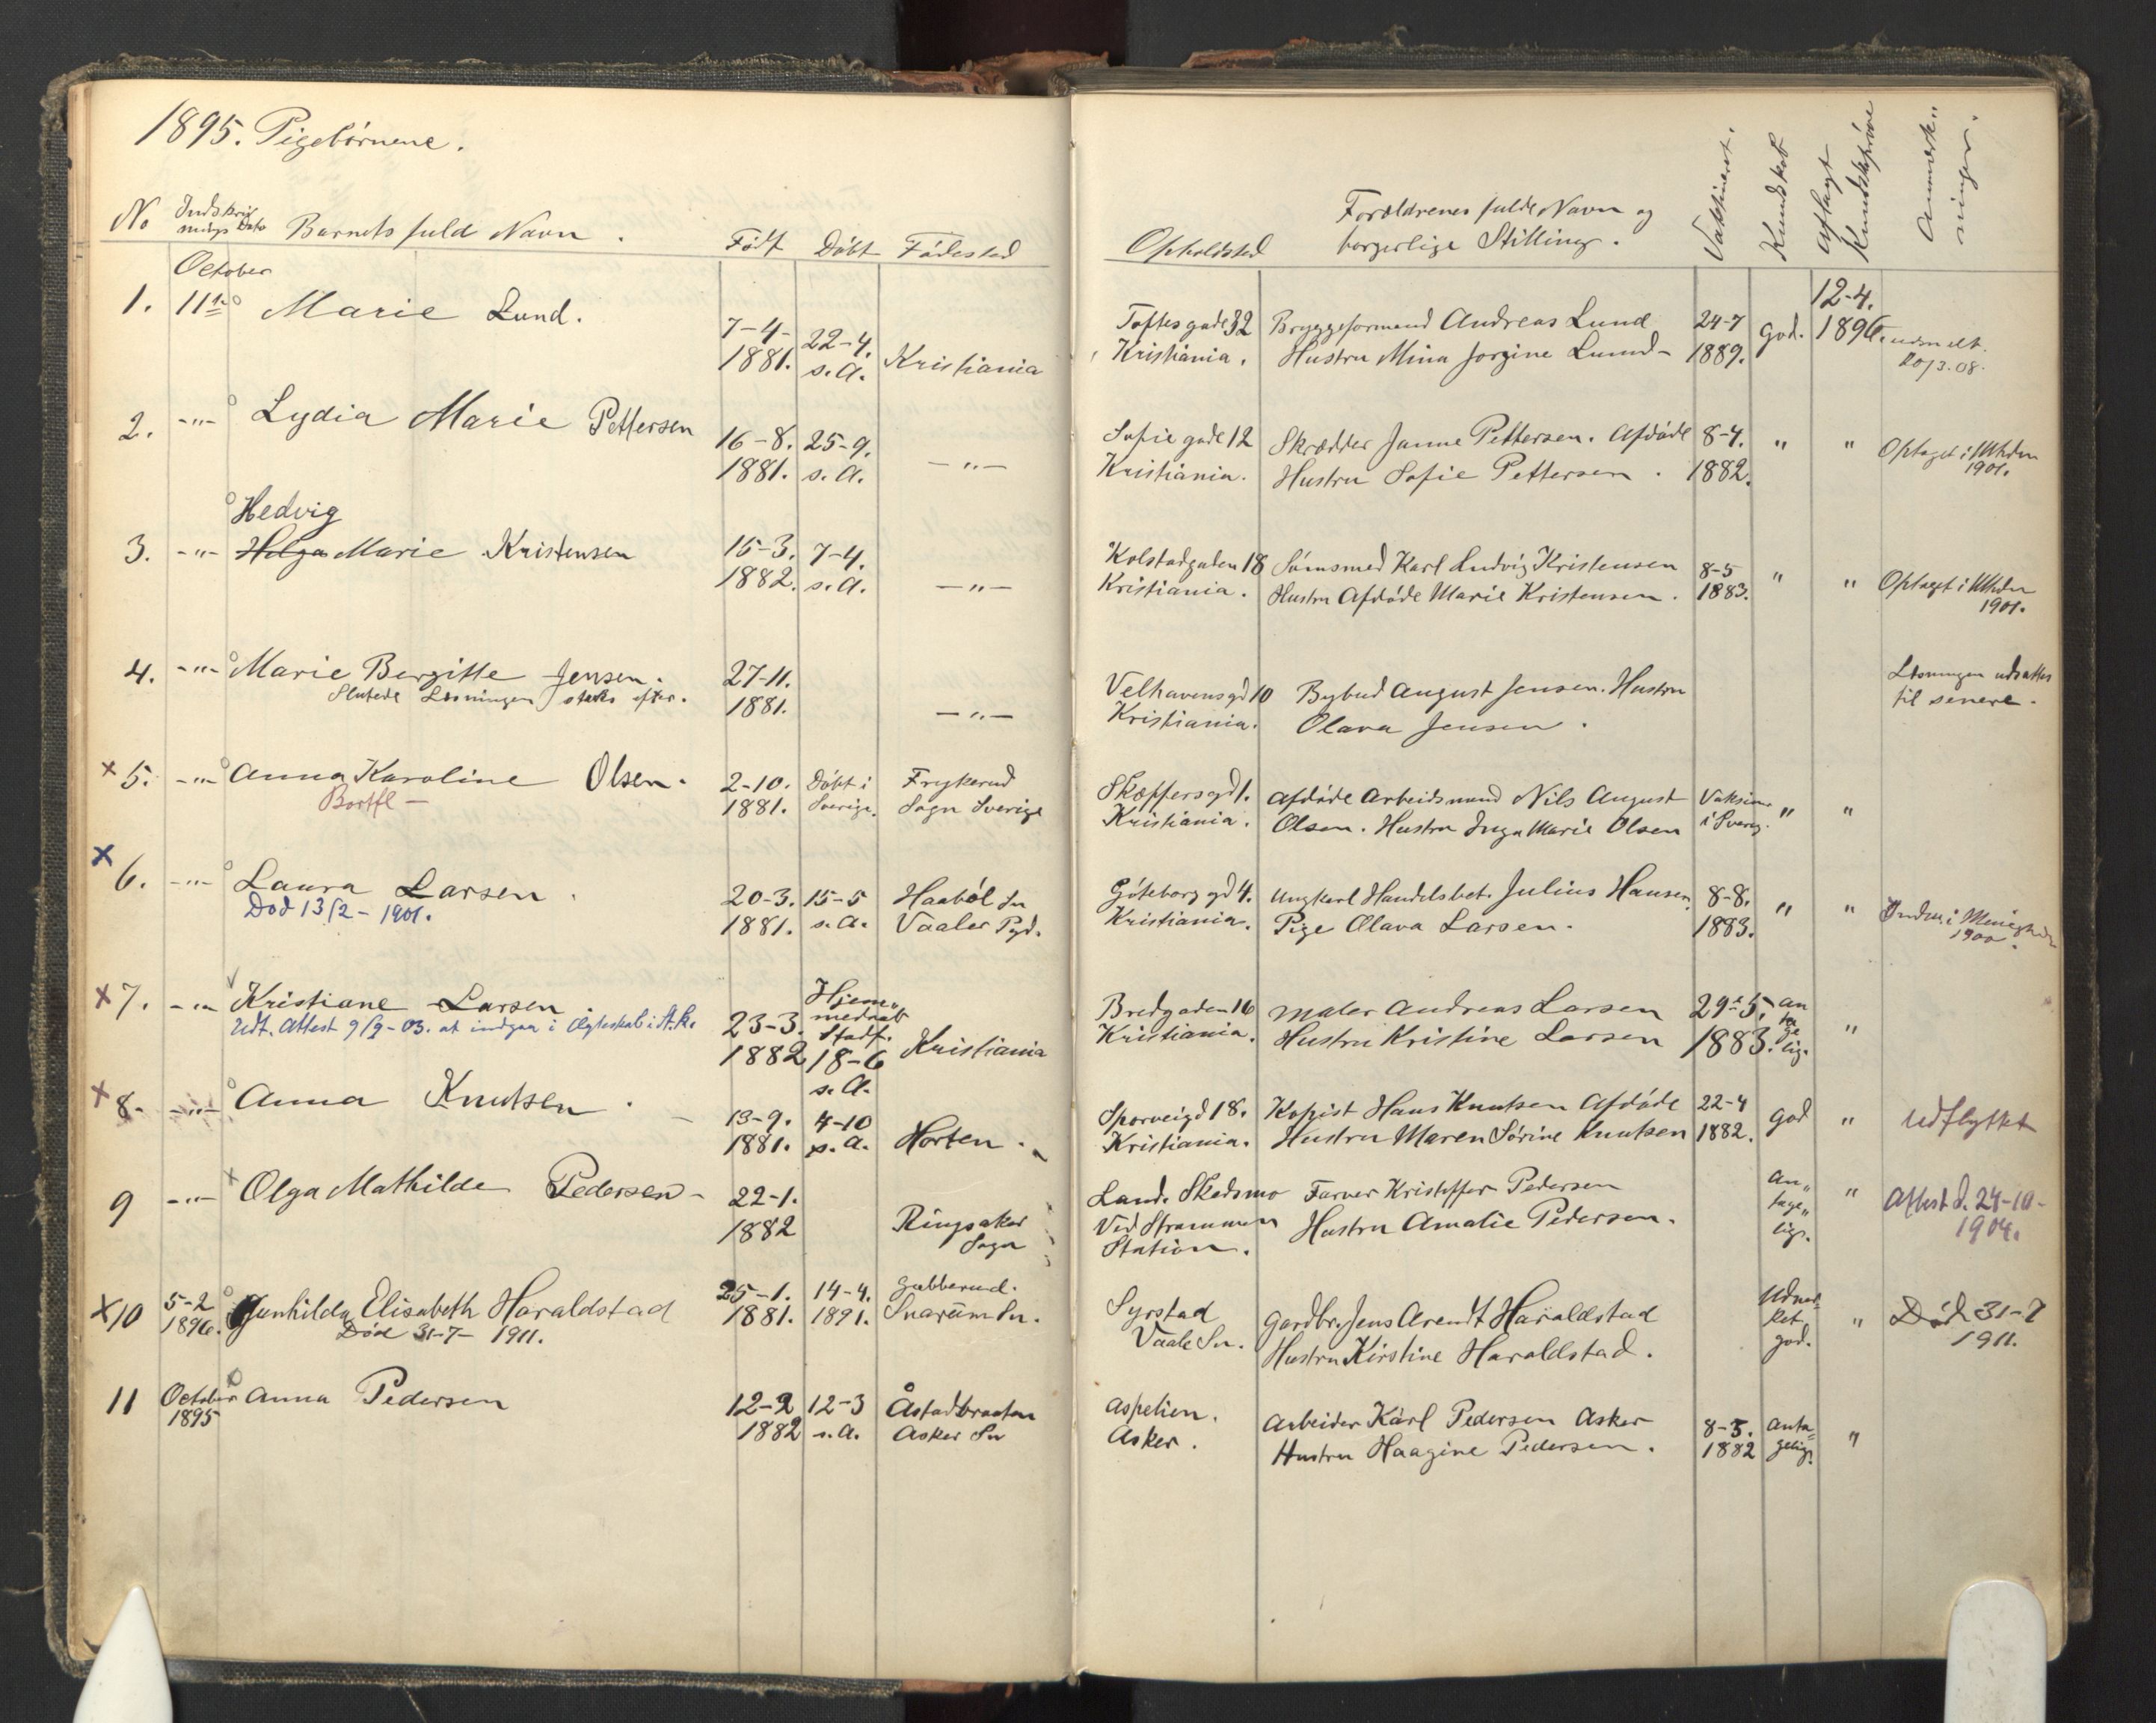 1895. Pigebørnene.
No Indskriv
nings Dato Barnets fuld Navn . Født Døbt Fødested
October
1. 11te Marie Lund. 7-4- 1881. 22-4. s.A. Kristiania
2. -"- Lydia Marie Pettersen 16-8. 1881. 25-9. s.A. -"-
Hedvig
3. -"- Helga Marie Kristensen 15-3. 1882. 7-4. s.A. -"-
4. -"- Marie Bergitte Jensen. 27-11. 1881. -"-
Slutede Læsningen straks efter.
x 5. -"- Anna Karoline Olsen. 2-10. 1881. Døbt i Sverige. Frykerud Sogn Sverige
Bortfl -
x 6. -"- Laura Larsen. 20-3. 1881. 15-5 s.A. Haabøl Sn Vaaler Pgd.
Død 13/2 - 1901.
x 7. -"- Kristiane Larsen. 23-3. 1882 Hjem„ medaab Stadf. 18-6 s.A. Kristiania
Udt. Attest 9/9-03. at indgaa i Ægteskab i St.k.
x 8. -"- Anna Knutsen. 13-9. 1881. 4-10 s.A. Horten.
9 -"- Olga Mathilde Pedersen- 22-1. 1882 Ringsaker Sogn
x 10 5-2 1896. Gunhilda Elisabeth Haraldstad 25-1. 1881. 14-4. 1891. Gubberud. Snarum Sn.
Død 31-7- 1911.
11 October 1895 Anna Pedersen 12-2 1882 12-3 s.A. Åstadbraaten Asker Sn
Opholdsted
Forældrenes fulde Navn og
borgerlige Stilling.
Vaktineret.
Kundskab
Aflagt
Kundskbsprøve
Anmærk„
ninger.
Toftesgade 32 Bryggeformand Andreas Lund 24-7 god. 12-4. 1896. udmeldt.
Kristiania. Hustru Mina Jorgine Lund- 1889. 20/3.08.
Sofiegade 12 Skrædder Janne Pettersen. Afdøde 8-4. " " Optaget i Mhden
Kristiania. Hustru Sofie Pettersen . 1882. 1901.
Kolstadgaden 18 Sømsmed Karl Ludvig Kristensen 8-5 " " Optaget i Mhden
Kristiania. Hustru Afdøde Marie Kristensen. 1883. 1901.
Velhavensgd 10 Bybud August Jensen. Hustru Læsningen udsattes
Kristiania. Olava Jensen . til senere.
Skæppersgd 1. Afdøde Arbeidsmand Nils August Vaksin. " "
Kristiania. Olsen. Hustru Inga Marie Olsen i Sverig.
Göteborggd 4. Ungkarl Handelsbet. Julius Hansen, 8-8. " " Indm. i Menighden
Kristiania. Pige Olava Larsen. 1883. 1900.
Bredgaden 16 Maler Andreas Larsen 29-5. an ta ge lig. "
Kristiania. Hustru Kristine Larsen 1883.
Sporveigd 18. Kopist Hans Knutsen Afdøde 22-4 god " Udflyttet
Kristiania. Hustru Maren Sørine Knutsen 1882.
Land. Skedsmo Farver Kristoffer Pedersen An„ tage„ lig. " Attest d. 24-10-
Ved Strømmen Hustru Amalie Pedersen. 1904.
Station.
Syrstad Gardbr. Jens Arendt Haraldstad Udmer- ket god. " Død 31-7
Vaale Sn. Hustru Kirstine Haraldstad. 1911.
Aspelien. Arbeider Karl Pedersen Asker 8-3. anta= gelig. "
Asker. Hustru Haagine Pedersen. 1882